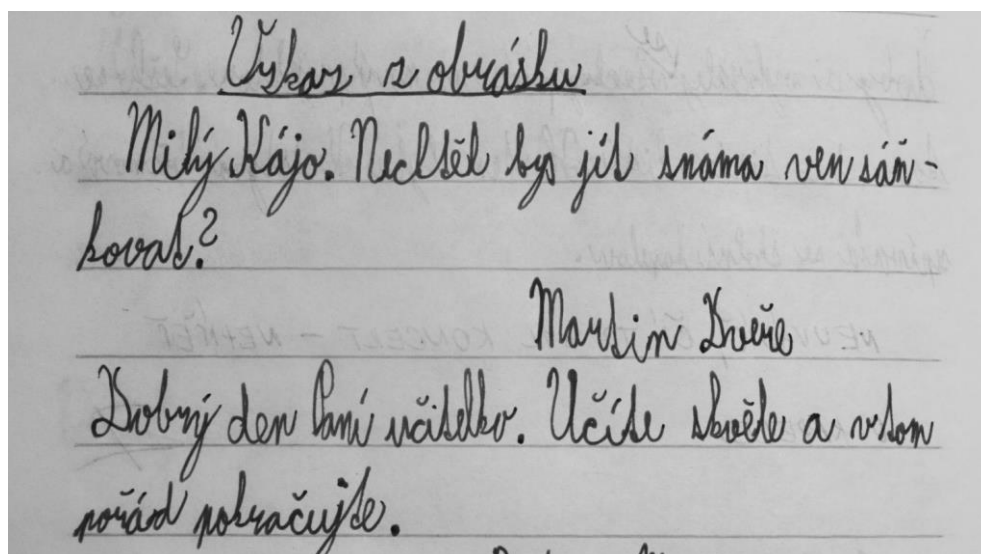 Vzkaz z obrásku
Milý Kájo. Nechtěl bys jít snáma ven sáň-
kovat?
Martin Dveře
Dobrý den Paní učitelko. Učíte skvěle a vtom
pořád pokračujte.